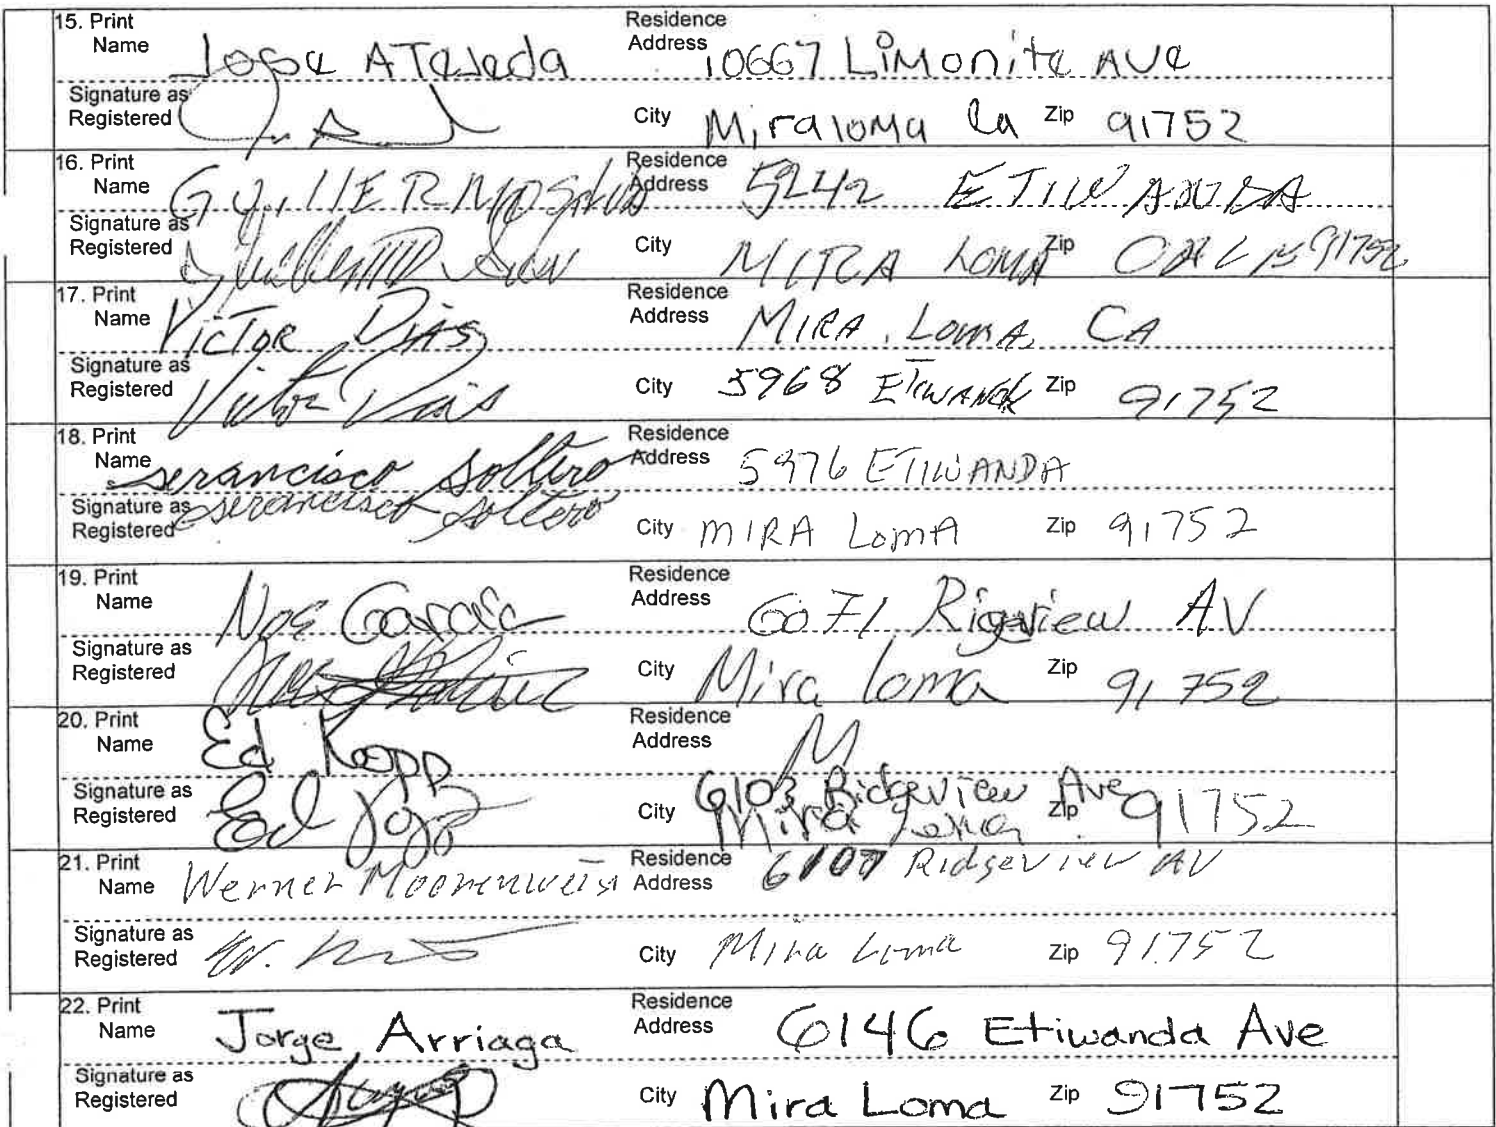 15. Print Name Jose A Tejeda Residence Address 10667 Limonite Ave
Signature as Registered City Miraloma Ca Zip 91752
16. Print Name Residence Address 5242 ETIWANDA
Signature as Registered City MIRA LOMA Zip 91752
17. Print Name VICTOR DIAS Residence Address MIRA. LOMA, CA
Signature as Registered Victor Dias City 5968 Zip 91752
18. Print Name serancisco soltero Residence Address 5976 ETIWANDA
Signature as Registered serancisco soltero City MIRA LomA Zip 91752
19. Print Name Noe Garcia Residence Address 6071 AV
Signature as Registered City Mira loma Zip 91752
20. Print Name Ed Kopp Residence Address M
6103 Ridgeview Ave
Signature as Registered Ed Kopp City Mira Loma Zip 91752
21. Print Name Werner Residence Address Ridgeview AV
Signature as Registered City Mira Loma Zip 91752
22. Print Name Jorge Arriaga Residence Address 6146 Etiwanda Ave
Signature as Registered City Mira Loma Zip 91752